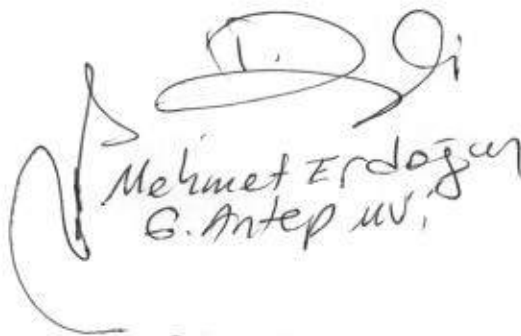 Mehmet Erdoğan
G. Antep MV.